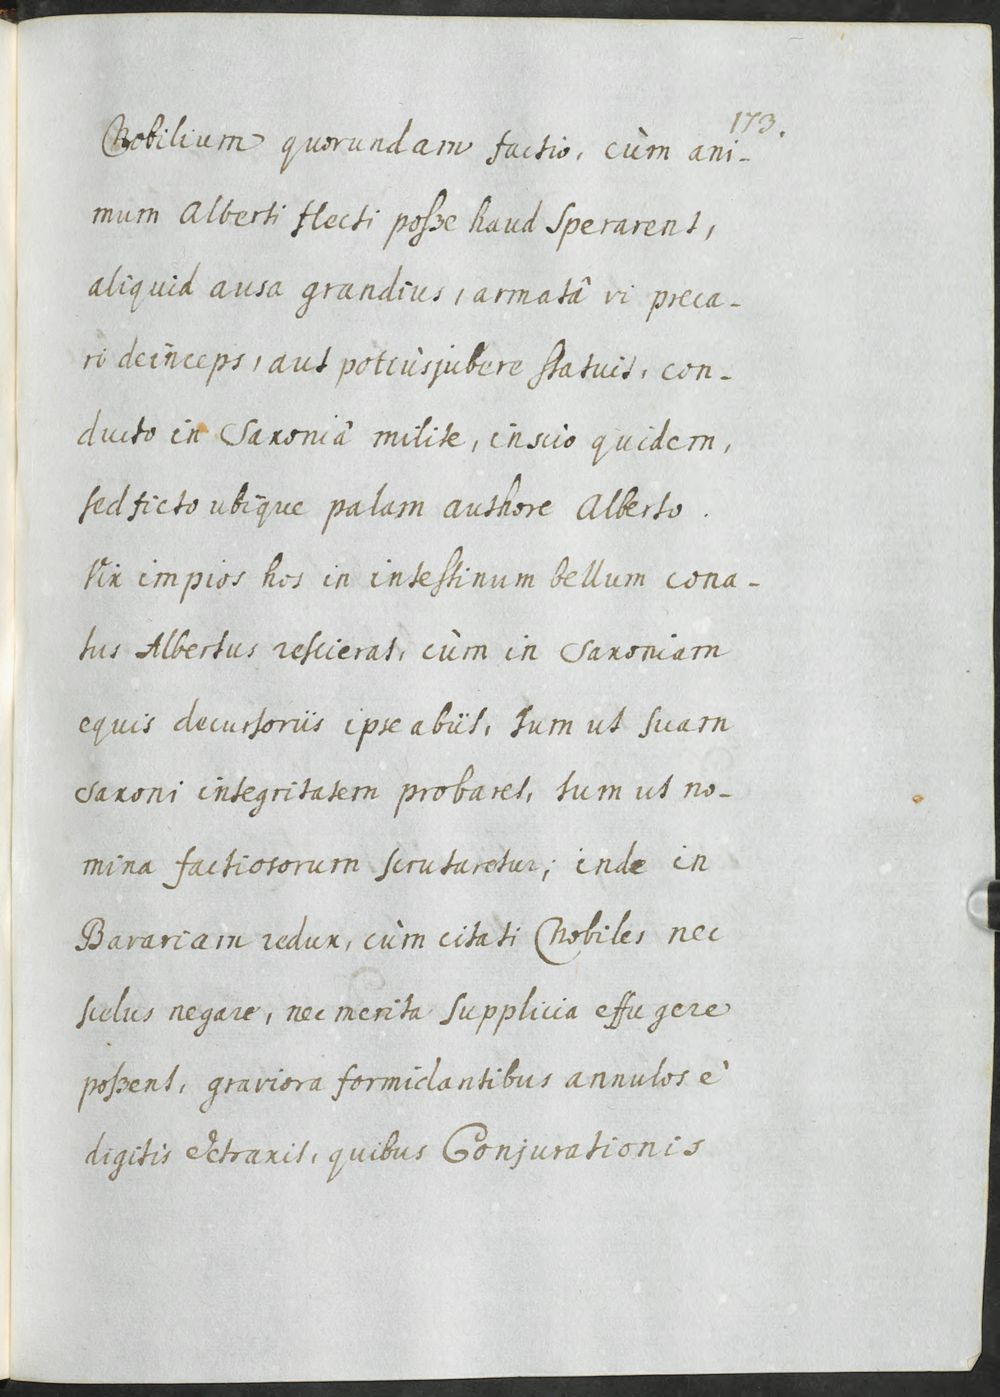 173.
Nobilium quorundam factio, cùm ani-
mum Alberti flecti poße haud Sperarent,
aliquid ausa grandius, armatâ vi preca-
ri deinceps, aut potiùs jubere statuit, con-
ducto in Saxoniâ milite, inscio quidem,
sed ficto ubique palam authore Alberto.
Vix impios hos in intestinum bellum cona-
tus Albertus rescierat, cùm in Saxoniam
equis decursoriis ipse abiit, tum ut suam
Saxoni integritatem probaret, tum ut no-
mina factiosorum scrutaretur; inde in
Bavariam redux, cùm citati Nobiles nec
scelus negare, nec merita Supplicia effugere
poßent, graviora formidantibus annulos è
digitis detraxit, quibus Conjurationis